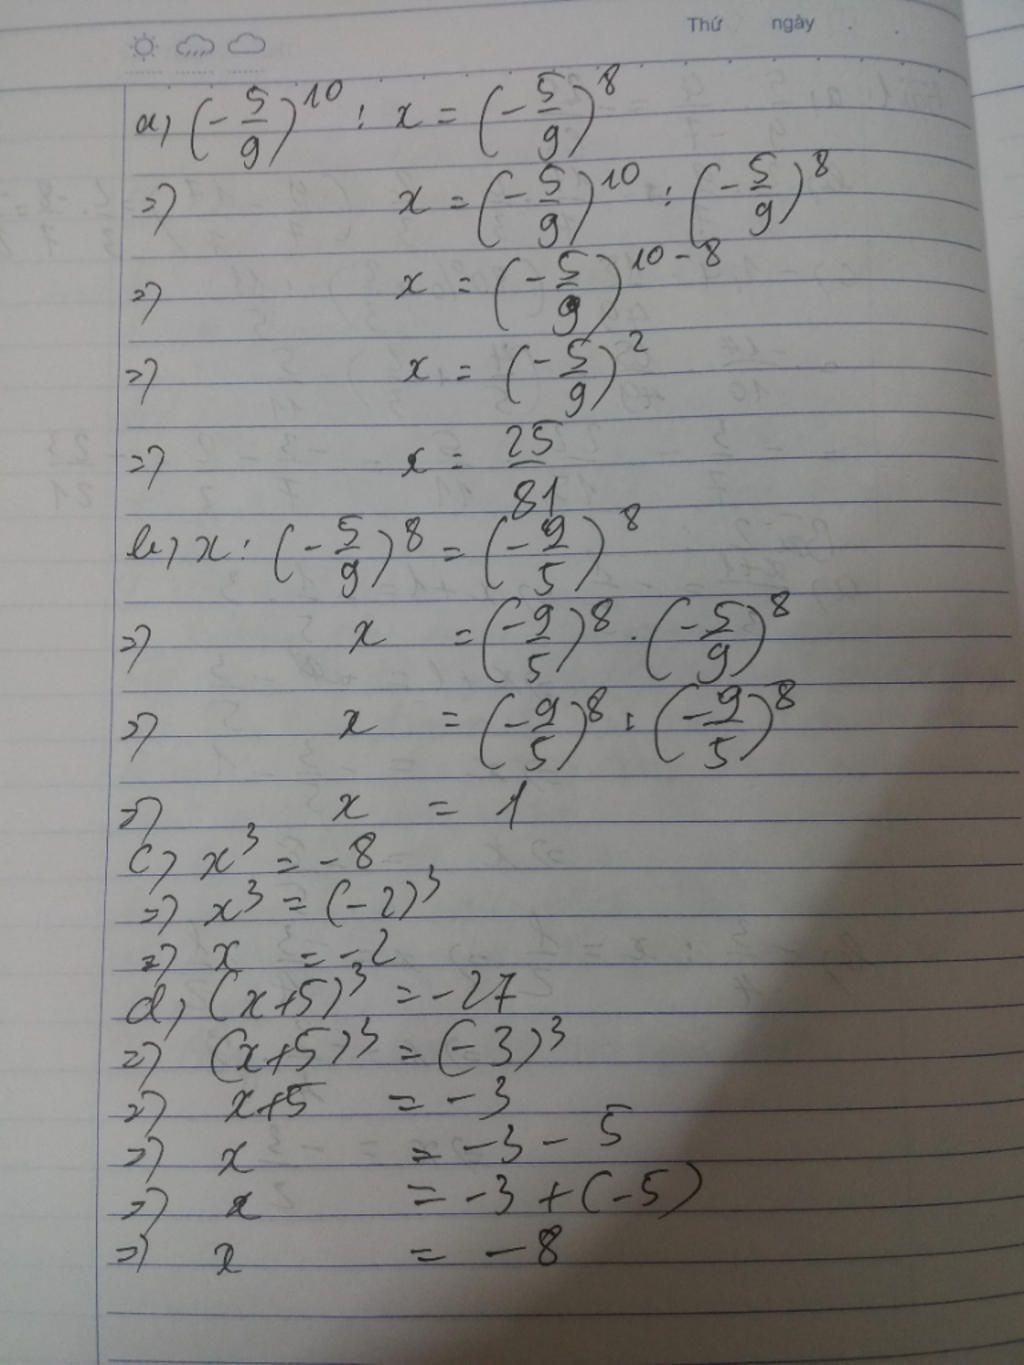 Thứ ngày
a) (-5/9)^10 : x = (-5/9)^8
=> x = (-5/9)^10 : (-5/9)^8
=> x = (-5/9)^10-8
=> x = (-5/9)^2
=> x = 25/81
b) x : (-5/9)^8 = (-9/5)^8
=> x = (-9/5)^8 . (-5/9)^8
=> x = (-9/5)^8 : (-9/5)^8
=> x = 1
c) x^3 = -8
=> x^3 = (-2)^3
=> x = -2
d) (x+5)^3 = -27
=> (x+5)^3 = (-3)^3
=> x+5 = -3
=> x = -3 - 5
=> x = -3 + (-5)
=> x = -8